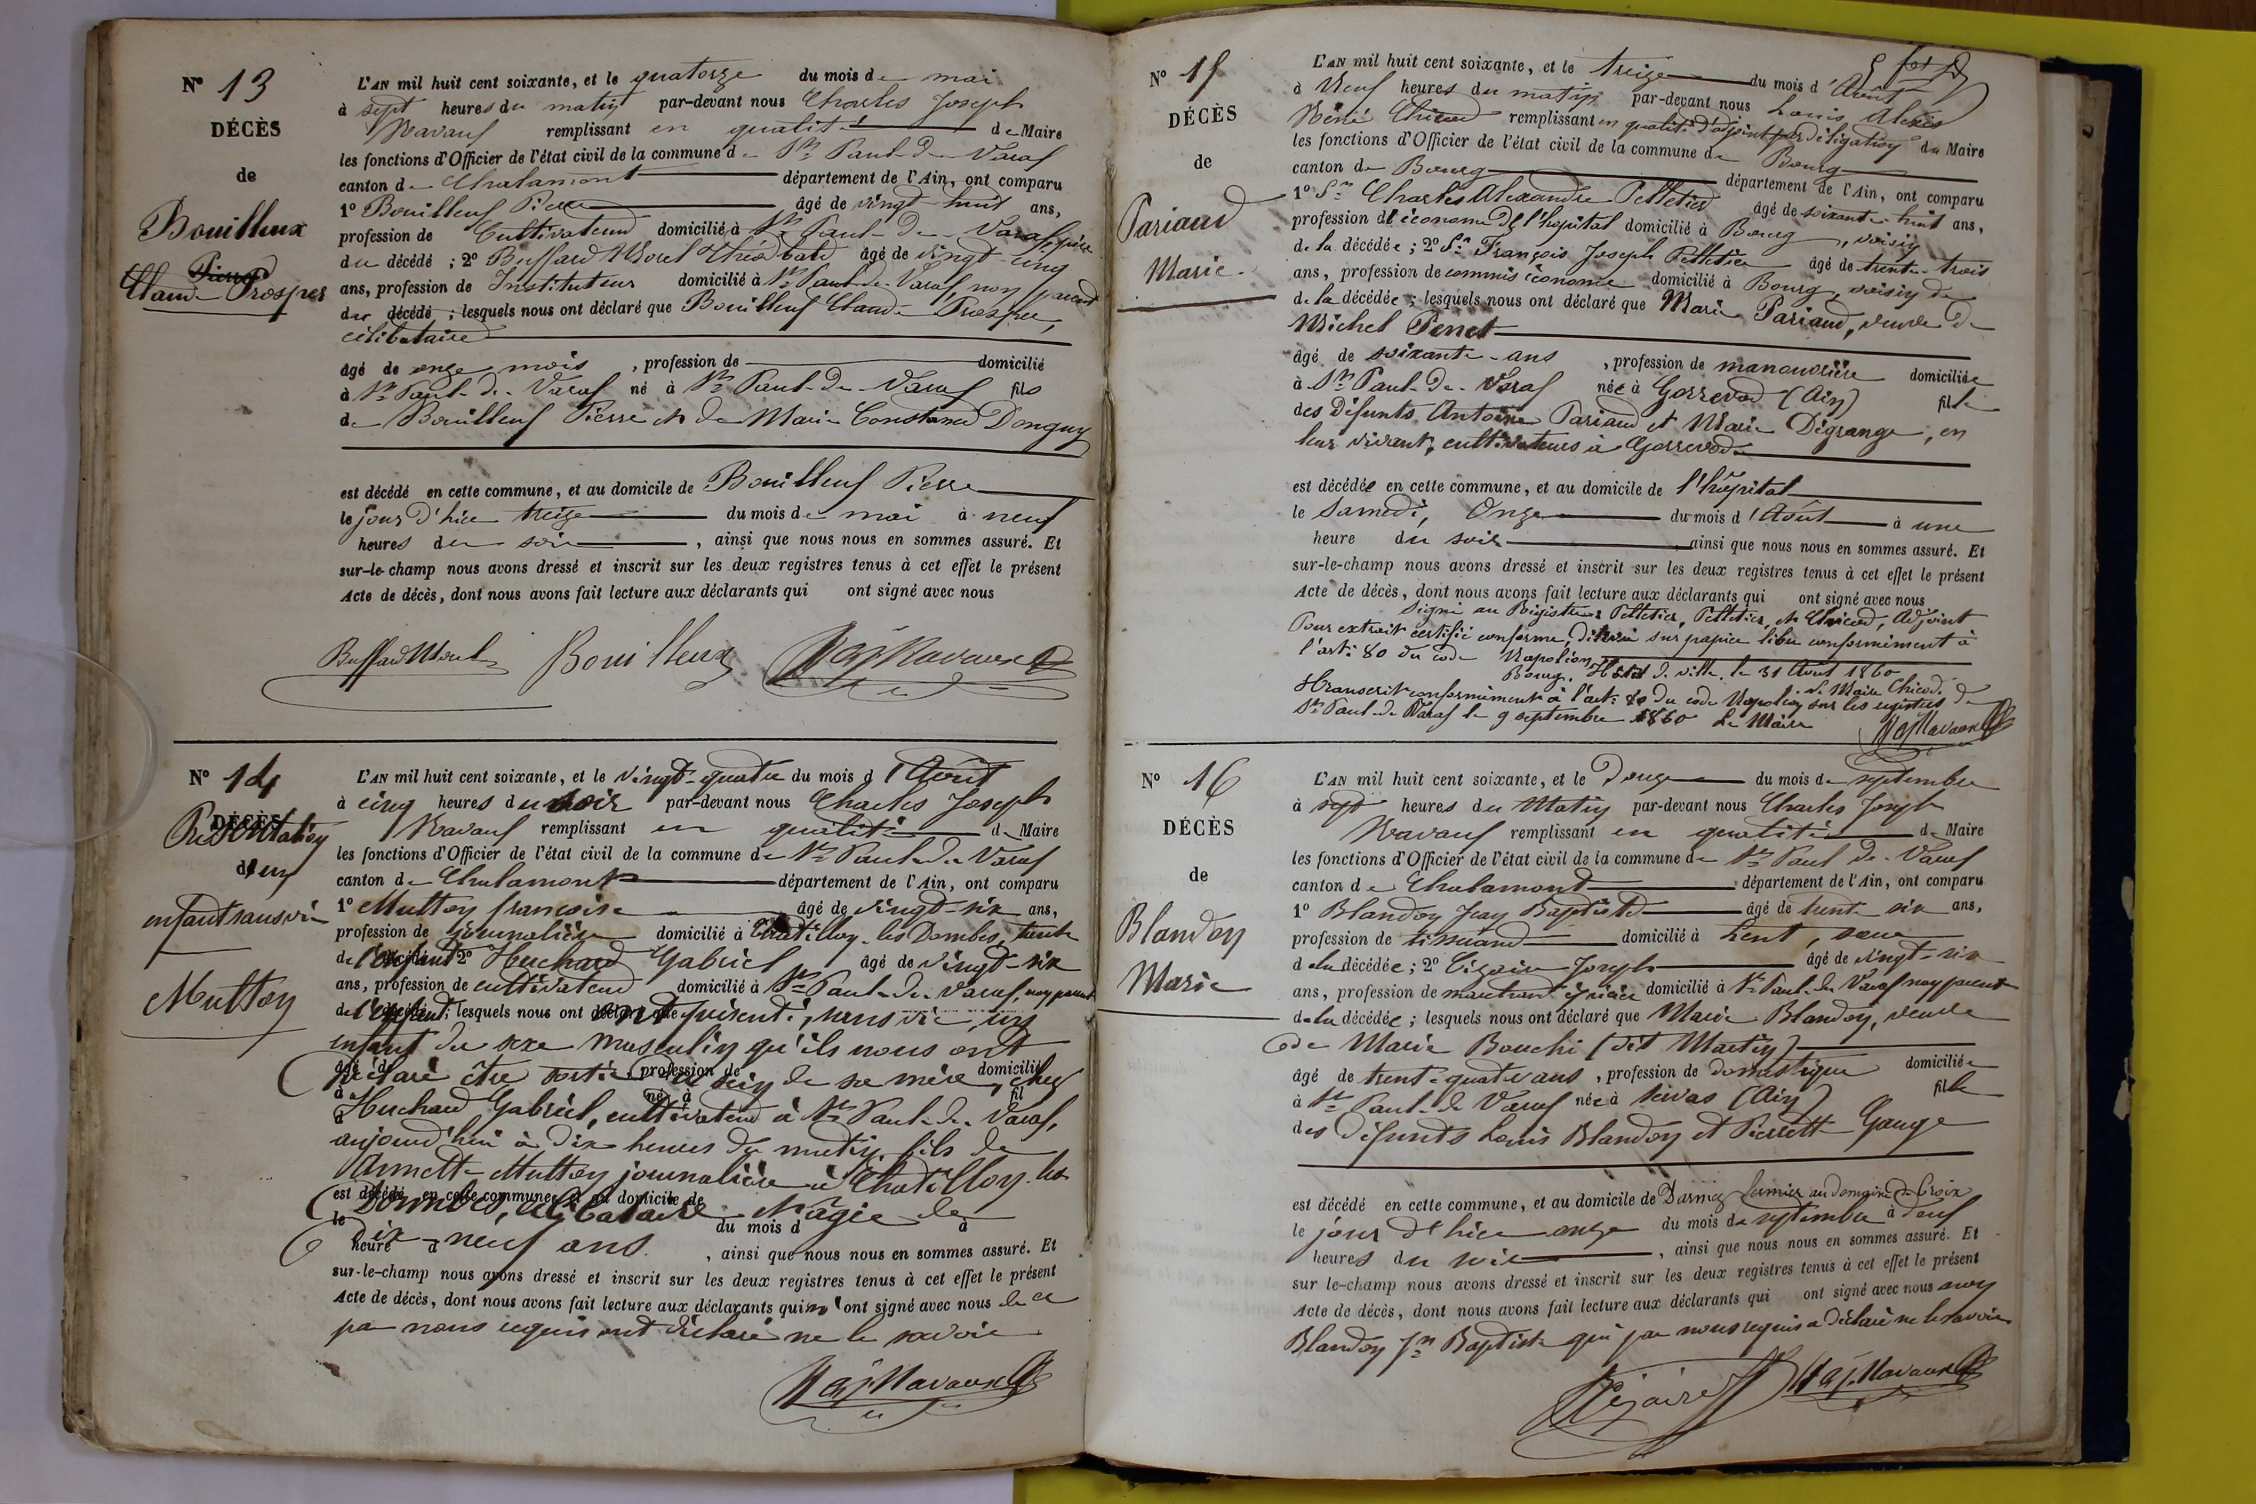 N° 13
DÉCÈS
de
Bouilleux
Pierre
Claude Prosper
L'AN mil huit cent soixante, et le quatorze du mois de mai
à sept heures du matin par-devant nous Charles Joseph
Navaux remplissant en qualité de Maire
les fonctions d'Officier de l'état civil de la commune de St Paul-de-Varax
canton de Chalamont département de l'Ain, ont comparu
1° Bouilleux Pierre âgé de vingt huit ans,
profession de Cultivateur domicilié à St Paul-de-Varax, père
du décédé ; 2° Buffard Morel Théobald âgé de vingt cinq
ans, profession de Instituteur domicilié à St Paul-de-Varax, non parent
du décédé ; lesquels nous ont déclaré que Bouilleux Claude Prosper,
célibataire
âgé de onze mois , profession de domicilié
à St Paul-de-Varax né à St Paul-de-Varax fils
de Bouilleux Pierre et de Marie Constance Donguy
est décédé en cette commune, et au domicile de Bouilleux Pierre
le jour d'hier treize du mois de mai à neuf
heures du soir , ainsi que nous nous en sommes assuré. Et
sur-le-champ nous avons dressé et inscrit sur les deux registres tenus à cet effet le présent
Acte de décès, dont nous avons fait lecture aux déclarants qui ont signé avec nous
Buffard Morel Bouilleux Navaux
N° 14
DÉCÈS
Présentation
d'un
enfant sans vie
Multon
L'AN mil huit cent soixante, et le vingt-quatre du mois d'Août
à cinq heures du soir par-devant nous Charles Joseph
Navaux remplissant en qualité de Maire
les fonctions d'Officier de l'état civil de la commune de St Paul-de-Varax
canton de Chalamont département de l'Ain, ont comparu
1° Multon françoise âgé de vingt-six ans,
profession de journalière domicilié à Chatillon-les Dombes, tante
de l'enfant 2° Huchard Gabriel âgé de vingt-six
ans, profession de cultivateur domicilié à St Paul-de-Varax, non parent
de l'enfant ; lesquels nous ont présenté, sans vie, un
enfant du sexe masculin qu'ils nous ont
déclaré être sorti du sein de sa mère, chez
Huchard Gabriel, cultivateur à St Paul-de-Varax,
aujourd'hui à dix heures du matin, fils de
Annette Multon journalière à Chatillon-les
Dombes, célibataire âgée de
dix-neuf ans. , ainsi que nous nous en sommes assuré. Et
sur-le-champ nous avons dressé et inscrit sur les deux registres tenus à cet effet le présent
Acte de décès, dont nous avons fait lecture aux déclarants qui n'ont signé avec nous de ce
par nous requis ont déclaré ne le savoir
Navaux
N° 15
DÉCÈS
de
Pariaud
Marie
L'AN mil huit cent soixante, et le treize du mois d'Août
à Neuf heures du matin par-devant nous Louis Alexis
Réné Chicod remplissant en qualité d'adjoint par délégation du Maire
les fonctions d'Officier de l'état civil de la commune de Bourg
canton de Bourg département de l'Ain, ont comparu
1° Sr Charles Alexandre Pelletier âgé de soixante-huit ans,
profession d'économe de l'hôpital domicilié à Bourg, voisin
de la décédée ; 2° Sr François Joseph Pelletier âgé de trente-trois
ans, profession de commis économe domicilié à Bourg, voisin de
de la décédée ; lesquels nous ont déclaré que Marie Pariaud, veuve de
Michel Penet
âgé de soixante-ans , profession de manouvrière domiciliée
à St Paul-de-Varax née à Gorrevod (Ain) fille
des défunts Antoine Pariaud et Marie Dégrange, en
leur vivant, cultivateurs à Gorrevod
est décédée en cette commune, et au domicile de l'hôpital
le samedi, Onze du mois d'Août à une
heure du soir ainsi que nous nous en sommes assuré. Et
sur-le-champ nous avons dressé et inscrit sur les deux registres tenus à cet effet le présent
Acte de décès, dont nous avons fait lecture aux déclarants qui ont signé avec nous
Signé au Registre : Pelletier, Pelletier, et Chicod, Adjoint
Pour extrait certifié conforme, délivré sur papier libre conformément à
l'art: 80 du code Napoléon
Bourg, Hôtel de ville, le 31 Août 1860
le Maire Chicod.
Transcrit conformément à l'art: 80 du code Napoléon sur les registres de
St Paul-de Varax le 9 septembre 1860 Le Maire
Navaux
N° 16
DÉCÈS
de
Blandon
Marie
L'AN mil huit cent soixante, et le Douze du mois de septembre
à sept heures du Matin par-devant nous Charles Joseph
Navaux remplissant en qualité de Maire
les fonctions d'Officier de l'état civil de la commune de St Paul-de-Varax
canton de Chalamont département de l'Ain, ont comparu
1° Blandon Jean Baptiste âgé de trente six ans,
profession de tisserand domicilié à Lent, sœur
de la décédée ; 2° Cizaire Joseph âgé de vingt-six
ans, profession de marchand épicier domicilié à St Paul-de-Varax non parent
de la décédée ; lesquels nous ont déclaré que Marie Blandon, veuve
de Marie Bouchi (dit Martin)
âgé de trente-quatre ans , profession de domestique domiciliée
à St Paul-de Varax née à Servas (Ain) fille
des défunts Louis Blandon et Pierrette Gauge
est décédé en cette commune, et au domicile de fermier au domaine de Croix
le jour d'hier onze du mois de septembre à neuf
heures du soir , ainsi que nous nous en sommes assuré. Et
sur le-champ nous avons dressé et inscrit sur les deux registres tenus à cet effet le présent
Acte de décès, dont nous avons fait lecture aux déclarants qui ont signé avec nous non
Blandon Jn Baptiste qui par nous requis a déclaré ne le savoir
Navaux